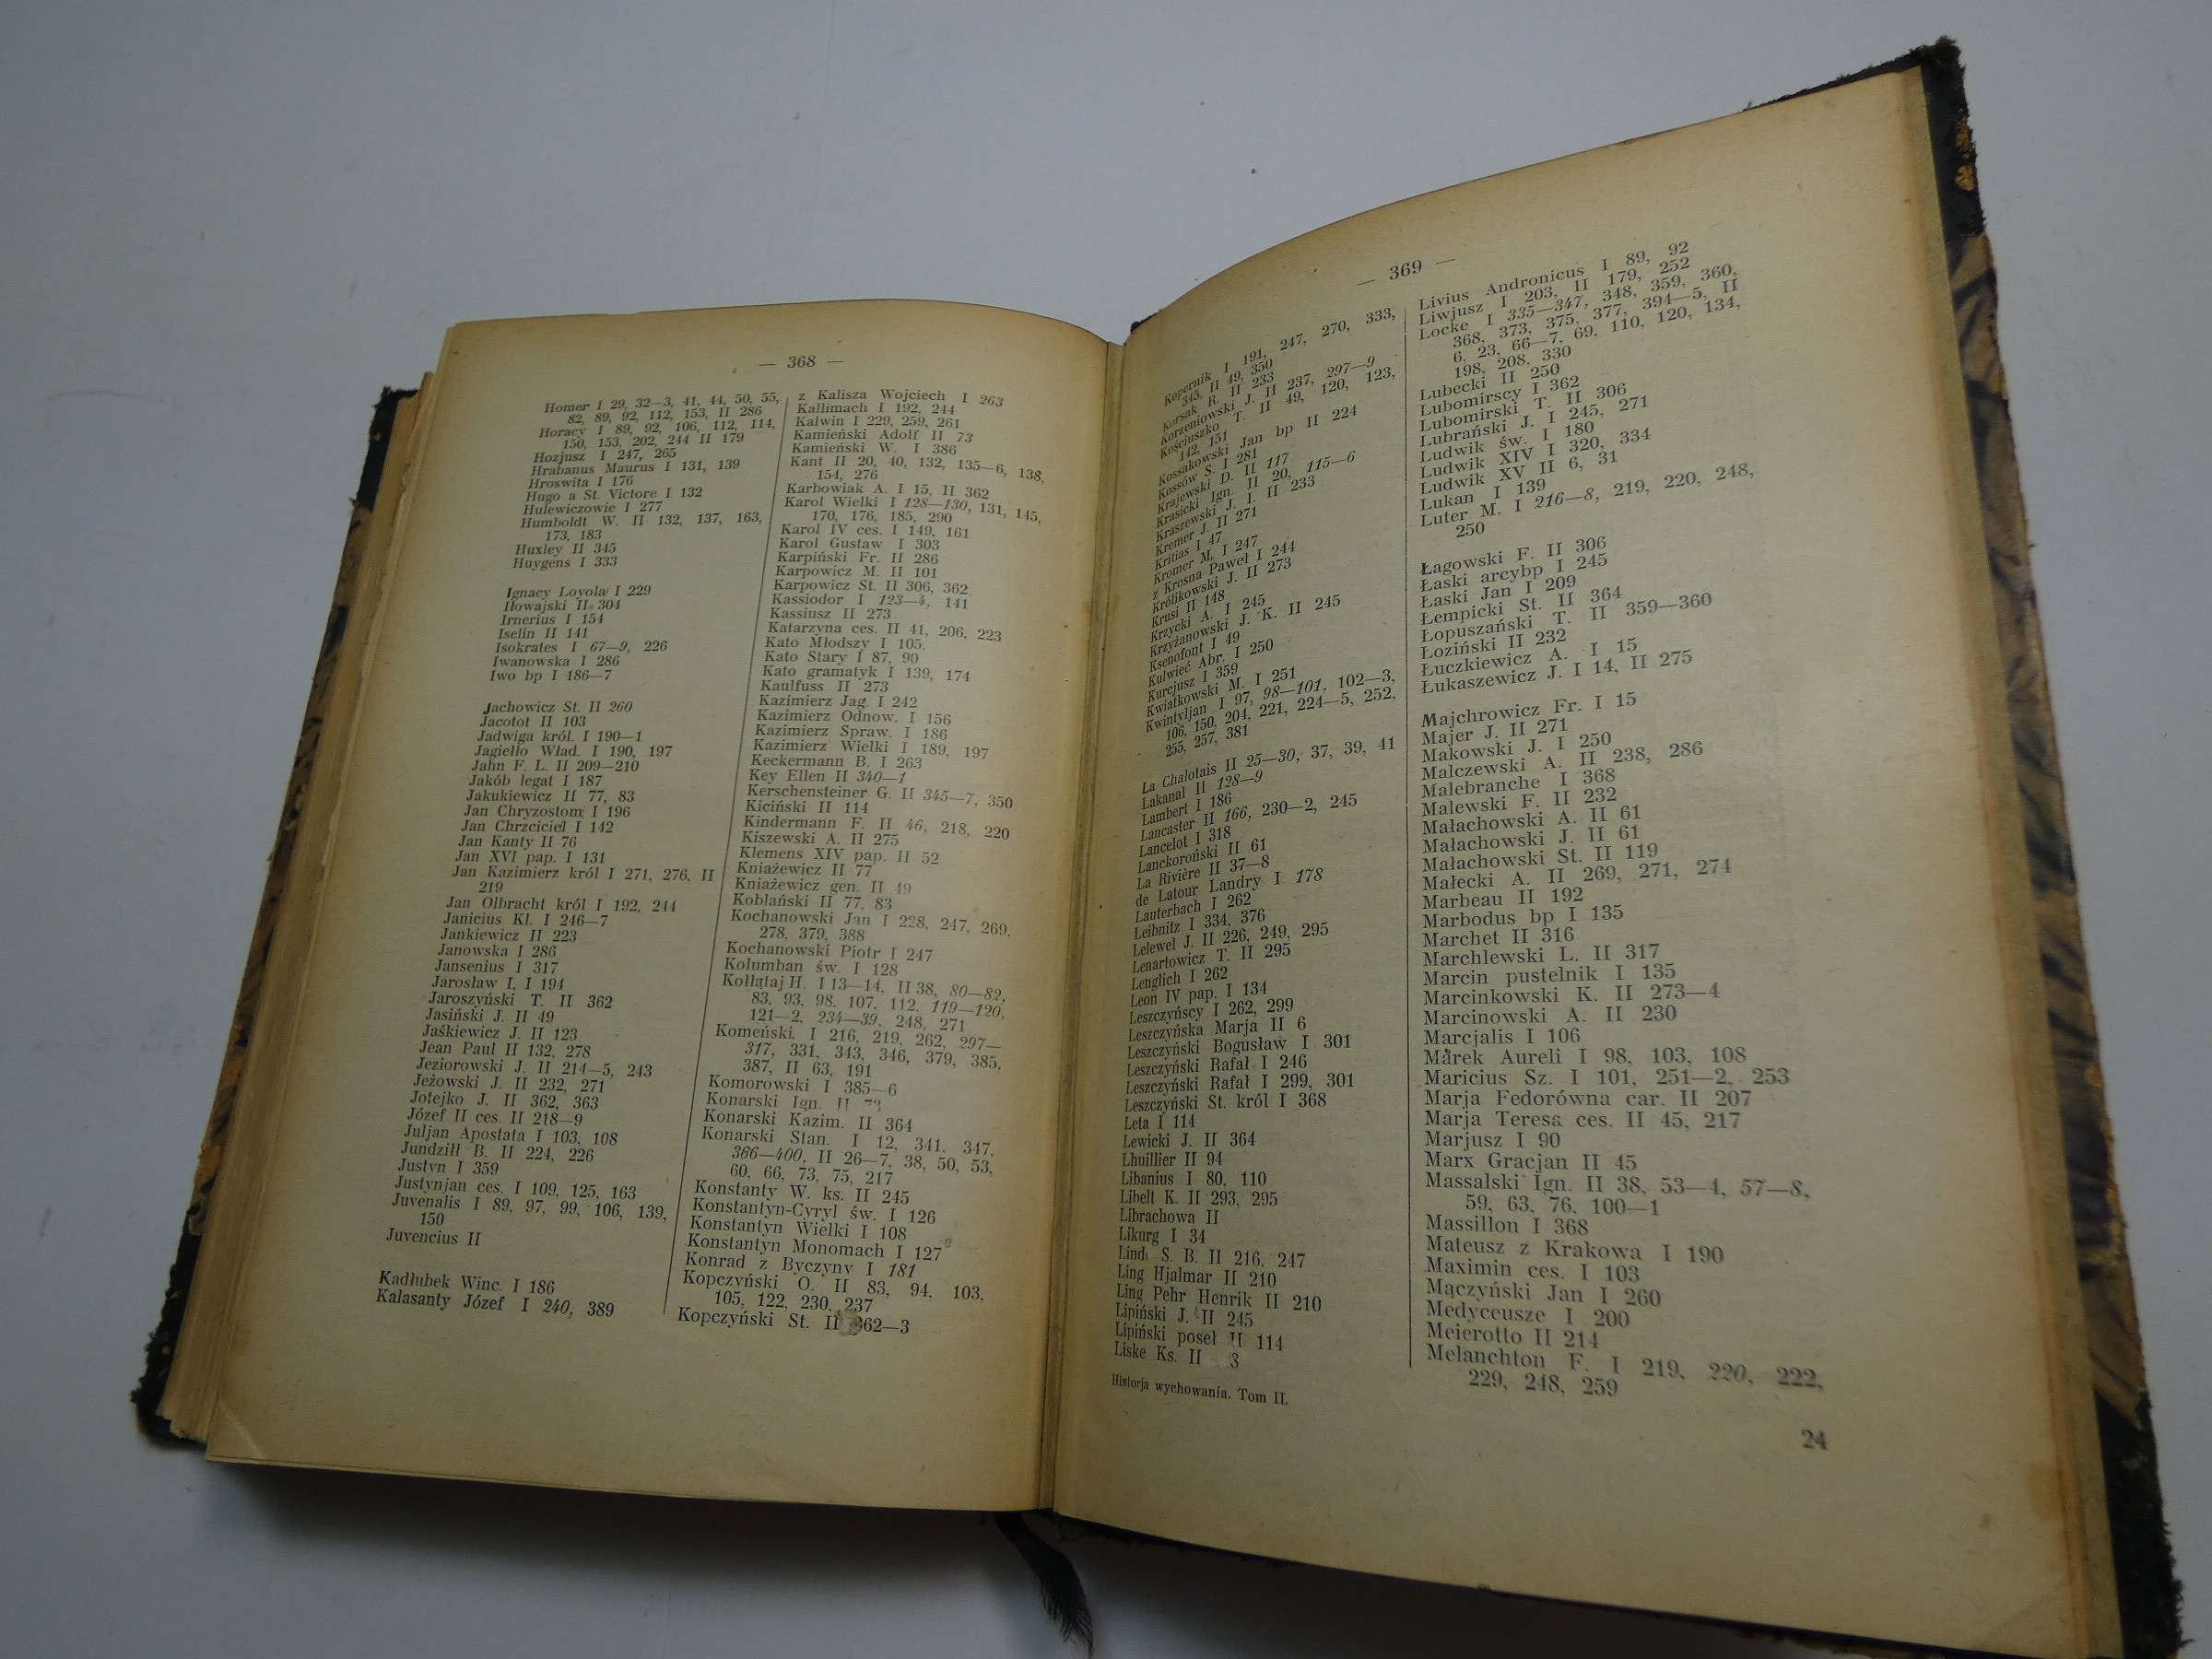 — 368 —
Homer I 29, 32—3, 41, 44, 50, 55,
82, 89, 92, 112, 153, II 286
Horacy I 89, 92, 106, 112, 114,
150, 153, 202, 244 II 179
Hozjusz I 247, 265
Hrabanus Maurus I 131, 139
Hroswita I 176
Hugo a St. Victore I 132
Hulewiczowie I 277
Humboldt W. II 132, 137, 163,
173, 183
Huxley II 345
Huygens I 333
Ignacy Loyola I 229
Iłowajski II 304
Irnerius I 154
Iselin II 141
Isokrates I 67—9, 226
Iwanowska I 286
Iwo bp I 186—7
Jachowicz St. II 260
Jacotot II 103
Jadwiga król. I 190—1
Jagiełło Wład. I 190, 197
Jahn F. L. II 209—210
Jakób legat I 187
Jakukiewicz II 77, 83
Jan Chryzostom I 196
Jan Chrzciciel I 142
Jan Kanty II 76
Jan XVI pap. I 131
Jan Kazimierz król I 271, 276, II
219
Jan Olbracht król I 192, 244
Janicius Kl. I 246—7
Jankiewicz II 223
Janowska I 286
Jansenius I 317
Jarosław I, I 194
Jaroszyński T. II 362
Jasiński J. II 49
Jaśkiewicz J. II 123
Jean Paul II 132, 278
Jeziorowski J. II 214—5, 243
Jeżowski J. II 232, 271
Jotejko J. II 362, 363
Józef II ces. II 218—9
Juljan Apostata I 103, 108
Jundziłł B. II 224, 226
Justyn I 359
Justynjan ces. I 109, 125, 163
Juvenalis I 89, 97, 99, 106, 139,
150
Juvencius II
Kadłubek Winc. I 186
Kalasanty Józef I 240, 389
z Kalisza Wojciech I 263
Kallimach I 192, 244
Kalwin I 229, 259, 261
Kamieński Adolf II 73
Kamieński W. I 386
Kant II 20, 40, 132, 135—6, 138,
154, 276
Karbowiak A. I 15, II 362
Karol Wielki I 128—130, 131, 145,
170, 176, 185, 290
Karol IV ces. I 149, 161
Karol Gustaw I 303
Karpiński Fr. II 286
Karpowicz M. II 101
Karpowicz St. II 306, 362
Kassiodor I 123—4, 141
Kassiusz II 273
Katarzyna ces. II 41, 206, 223
Kato Młodszy I 105.
Kato Stary I 87, 90
Kato gramatyk I 139, 174
Kaulfuss II 273
Kazimierz Jag. I 242
Kazimierz Odnow. I 156
Kazimierz Spraw. I 186
Kazimierz Wielki I 189, 197
Keckermann B. I 263
Key Ellen II 340—1
Kerschensteiner G. II 345—7, 350
Kiciński II 114
Kindermann F. II 46, 218, 220
Kiszewski A. II 275
Klemens XIV pap. II 52
Kniażewicz II 77
Kniażewicz gen. II 49
Koblański II 77, 83
Kochanowski Jan I 228, 247, 269,
278, 379, 388
Kochanowski Piotr I 247
Kolumban św. I 128
Kołłątaj H. I 13—14, II 38, 80—82,
83, 93, 98, 107, 112, 119—120,
121—2, 234—39, 248, 271
Komeński. I 216, 219, 262, 297—
317, 331, 343, 346, 379, 385,
387, II 63, 191
Komorowski I 385—6
Konarski Ign. II 73
Konarski Kazim. II 364
Konarski Stan. I 12, 341, 347,
366—400, II 26—7, 38, 50, 53,
60, 66, 73, 75, 217
Konstanty W. ks. II 245
Konstantyn-Cyryl św. I 126
Konstantyn Wielki I 108
Konstantyn Monomach I 127
Konrad z Byczyny I 181
Kopczyński O. II 83, 94, 103,
105, 122, 230, 237
Kopczyński St. II 362—3
— 369 —
Kopernik I 191, 247, 270, 333,
345, II 49, 350
Korsak R. II 233
Korzeniowski J. II 237, 297—9
Kościuszko T. II 49, 120, 123,
142, 151
Kossakowski Jan bp II 224
Kossów S. I 281
Krajewski D. II 117
Krasicki Ign. II 20, 115—6
Kraszewski J. I. II 233
Kremer J. II 271
Kritias I 47
Kromer M. I 247
z Krosna Paweł I 244
Królikowski J. II 273
Krusi II 148
Krzycki A. I 245
Krzyżanowski J. K. II 245
Ksenofont I 49
Kulwieć Abr. I 250
Kurcjusz I 359
Kwiatkowski M. I 251
Kwintyljan I 97, 98—101, 102—3,
106, 150, 204, 221, 224—5, 252,
255, 257, 381
La Chalotais II 25—30, 37, 39, 41
Lakanal II 128—9
Lambert I 186
Lancaster II 166, 230—2, 245
Lancelot I 318
Lanckoroński II 61
La Rivière II 37—8
de Latour Landry I 178
Lauterbach I 262
Leibnitz I 334, 376
Lelewel J. II 226, 249, 295
Lenartowicz T. II 295
Lenglich I 262
Leon IV pap. I 134
Leszczyńscy I 262, 299
Leszczyńska Marja II 6
Leszczyński Bogusław I 301
Leszczyński Rafał I 246
Leszczyński Rafał I 299, 301
Leszczyński St. król I 368
Leta I 114
Lewicki J. II 364
Lhuillier II 94
Libanius I 80, 110
Libelt K. II 293, 295
Librachowa II
Likurg I 34
S. B. II 216, 247
Ling Hjalmar II 210
Ling Pehr Henrik II 210
Lipiński J. II 245
Lipiński poseł II 114
Liske Ks. II 3
Historja wychowania. Tom II.
Livius Andronicus I 89, 92
Liwjusz I 203, II 179, 252
Locke I 335—347, 348, 359, 360,
368, 373, 375, 377, 394—5, II
6, 23, 66—7, 69, 110, 120, 134,
198, 208, 330
Lubecki II 250
Lubomirscy I 362
Lubomirski T. II 306
Lubrański J. I 245, 271
Ludwik św. I 180
Ludwik XIV I 320, 334
Ludwik XV II 6, 31
Lukan I 139
Luter M. I 216—8, 219, 220, 248,
250
Łagowski F. II 306
Łaski arcybp I 245
Łaski Jan I 209
Łempicki St. II 364
Łopuszański T. II 359—360
Łoziński II 232
Łuczkiewicz A. I 15
Łukaszewicz J. I 14, II 275
Majchrowicz Fr. I 15
Majer J. II 271
Makowski J. I 250
Malczewski A. II 238, 286
Malebranche I 368
Malewski F. II 232
Małachowski A. II 61
Małachowski J. II 61
Małachowski St. II 119
Małecki A. II 269, 271, 274
Marbeau II 192
Marbodus bp I 135
Marchet II 316
Marchlewski L. II 317
Marcin pustelnik I 135
Marcinkowski K. II 273—4
Marcinowski A. II 230
Marcjalis I 106
Marek Aureli I 98, 103, 108
Maricius Sz. I 101, 251—2, 253
Marja Fedorówna car. II 207
Marja Teresa ces. II 45, 217
Marjusz I 90
Marx Gracjan II 45
Massalski Ign. II 38, 53—4, 57—8,
59, 63, 76, 100—1
Massillon I 368
Mateusz z Krakowa I 190
Maximin ces. I 103
Mączyński Jan I 260
Medyceusze I 200
Meierotto II 214
Melanchton F. I 219, 220, 222,
229, 248, 259
24